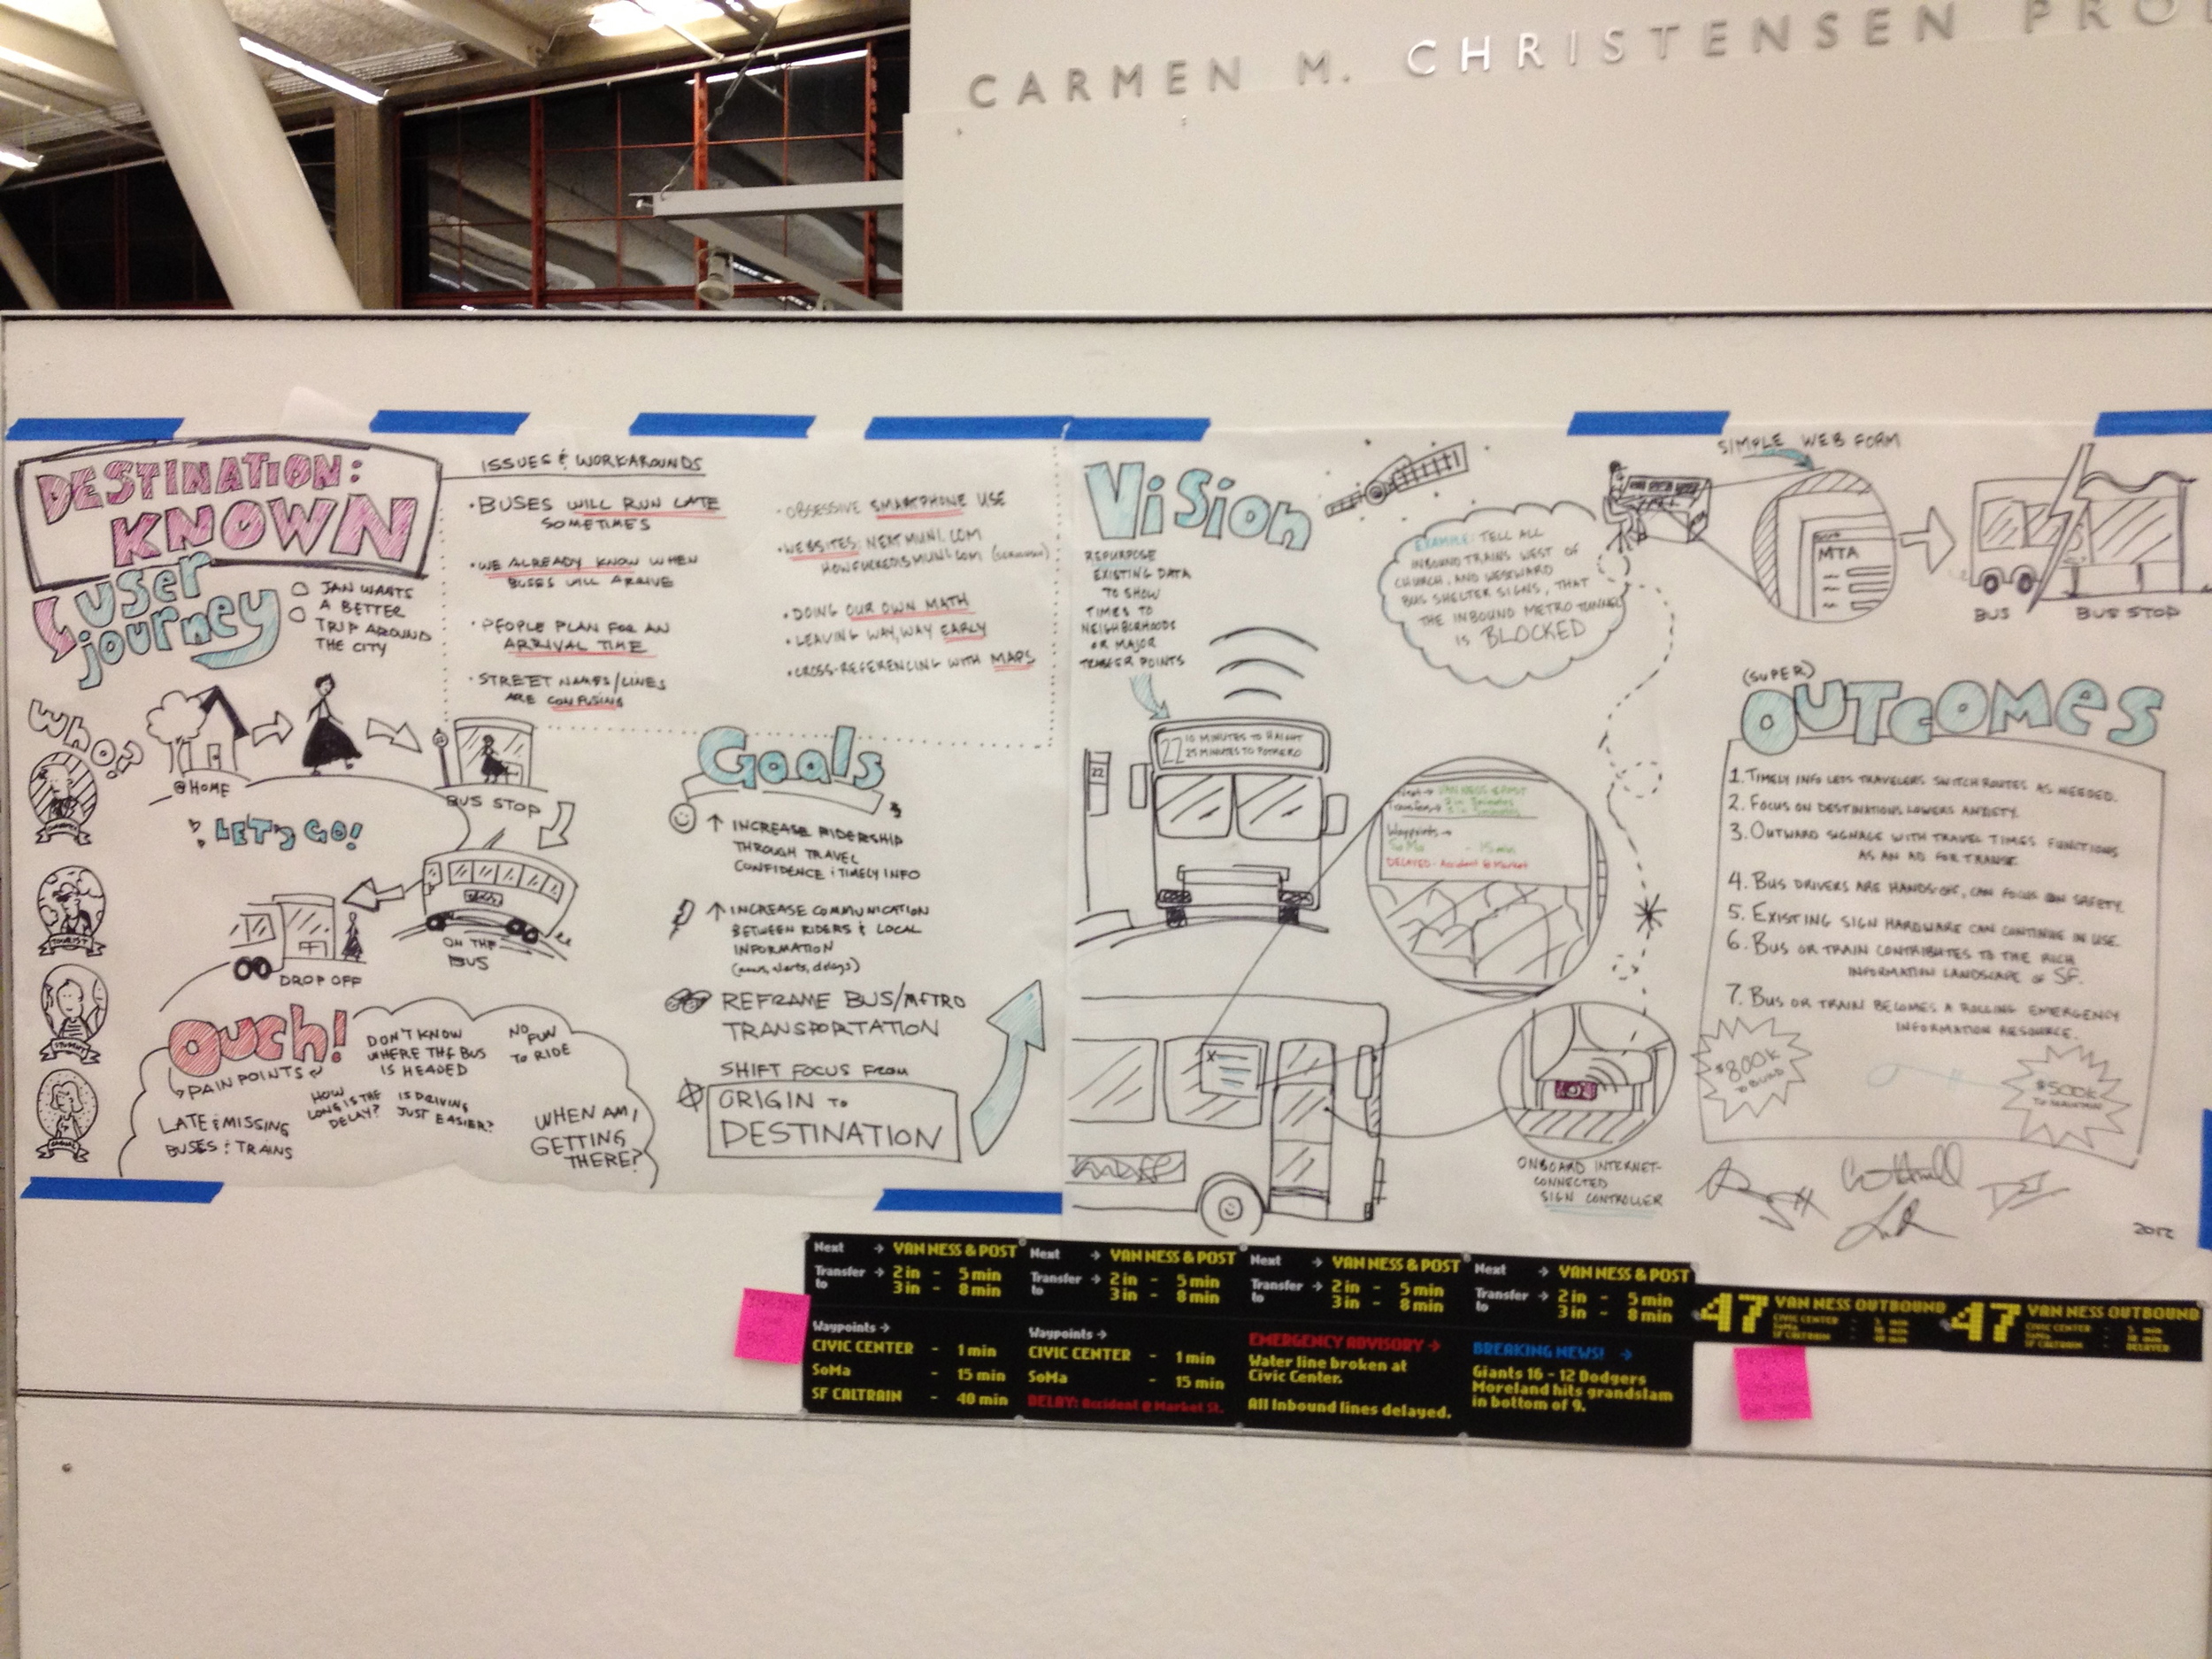 CARMEN M. CHRISTENSEN PRO
DESTINATION:
KNOWN
USER
journey
JAN WANTS
A BETTER
TRIP AROUND
THE CITY
ISSUES & WORKAROUNDS
• BUSES WILL RUN LATE
SOMETIMES
• WE ALREADY KNOW WHEN
BUSES WILL ARRIVE
• PEOPLE PLAN FOR AN
ARRIVAL TIME
• STREET NAMES/LINES
ARE CONFUSING
• OBSESSIVE SMARTPHONE USE
• WEBSITES: NEXTMUNI.COM
HOWFUCKEDISMUNI.COM (SERIOUSLY)
• DOING OUR OWN MATH
• LEAVING WAY, WAY EARLY
• CROSS-REFERENCING WITH MAPS
WHO?
@HOME
BUS STOP
LET'S GO!
ON THE
BUS
DROP OFF
TOURIST
STUDENT
OUCH!
PAIN POINTS
DON'T KNOW
WHERE THE BUS
IS HEADED
NO FUN
TO RIDE
HOW
LONG IS THE
DELAY?
IS DRIVING
JUST EASIER?
LATE & MISSING
BUSES & TRAINS
WHEN AM I
GETTING
THERE?
Goals
↑ INCREASE RIDERSHIP
THROUGH TRAVEL
CONFIDENCE & TIMELY INFO
↑ INCREASE COMMUNICATION
BETWEEN RIDERS & LOCAL
INFORMATION
(news, alerts, delays)
REFRAME BUS/METRO
TRANSPORTATION
SHIFT FOCUS FROM
ORIGIN TO
DESTINATION
Vision
REPURPOSE
EXISTING DATA
TO SHOW
TIMES TO
NEIGHBORHOODS
OR MAJOR
TRANSFER POINTS
EXAMPLE: TELL ALL
INBOUND TRAINS WEST OF
CHURCH, AND WESTWARD
BUS SHELTER SIGNS, THAT
THE INBOUND METRO TUNNEL
IS BLOCKED
SIMPLE WEB FORM
MTA
BUS
BUS STOP
22
22 10 MINUTES TO HAIGHT
25 MINUTES TO POTRERO
Next → VAN NESS & POST
Transfer →
Waypoints →
SoMa - 15 min
DELAYED: Accident @ Market
ONBOARD INTERNET-
CONNECTED
SIGN CONTROLLER
(SUPER)
OUTCOMES
1. TIMELY INFO LETS TRAVELERS SWITCH ROUTES AS NEEDED.
2. FOCUS ON DESTINATIONS LOWERS ANXIETY.
3. OUTWARD SIGNAGE WITH TRAVEL TIMES FUNCTIONS
AS AN AD FOR TRANSIT.
4. BUS DRIVERS ARE HANDS-OFF, CAN FOCUS ON SAFETY.
5. EXISTING SIGN HARDWARE CAN CONTINUE IN USE.
6. BUS OR TRAIN CONTRIBUTES TO THE RICH
INFORMATION LANDSCAPE OF SF.
7. BUS OR TRAIN BECOMES A ROLLING EMERGENCY
INFORMATION RESOURCE.
$800K
TO BUILD
$500K
TO MAINTAIN
2012
Next → VAN NESS & POST
Transfer → 2 in - 5 min
to 3 in - 8 min
Waypoints →
CIVIC CENTER - 1 min
SoMa - 15 min
SF CALTRAIN - 40 min
Next → VAN NESS & POST
Transfer → 2 in - 5 min
to 3 in - 8 min
Waypoints →
CIVIC CENTER - 1 min
SoMa - 15 min
DELAY: Accident @ Market St.
Next → VAN NESS & POST
Transfer → 2 in - 5 min
to 3 in - 8 min
EMERGENCY ADVISORY →
Water line broken at
Civic Center.
All Inbound lines delayed.
Next → VAN NESS & POST
Transfer → 2 in - 5 min
to 3 in - 8 min
BREAKING NEWS! →
Giants 16 - 12 Dodgers
Moreland hits grandslam
in bottom of 9.
47 VAN NESS OUTBOUND
CIVIC CENTER
SoMa
SF CALTRAIN
47 VAN NESS OUTBOUND
CIVIC CENTER
SoMa
SF CALTRAIN - DELAYED